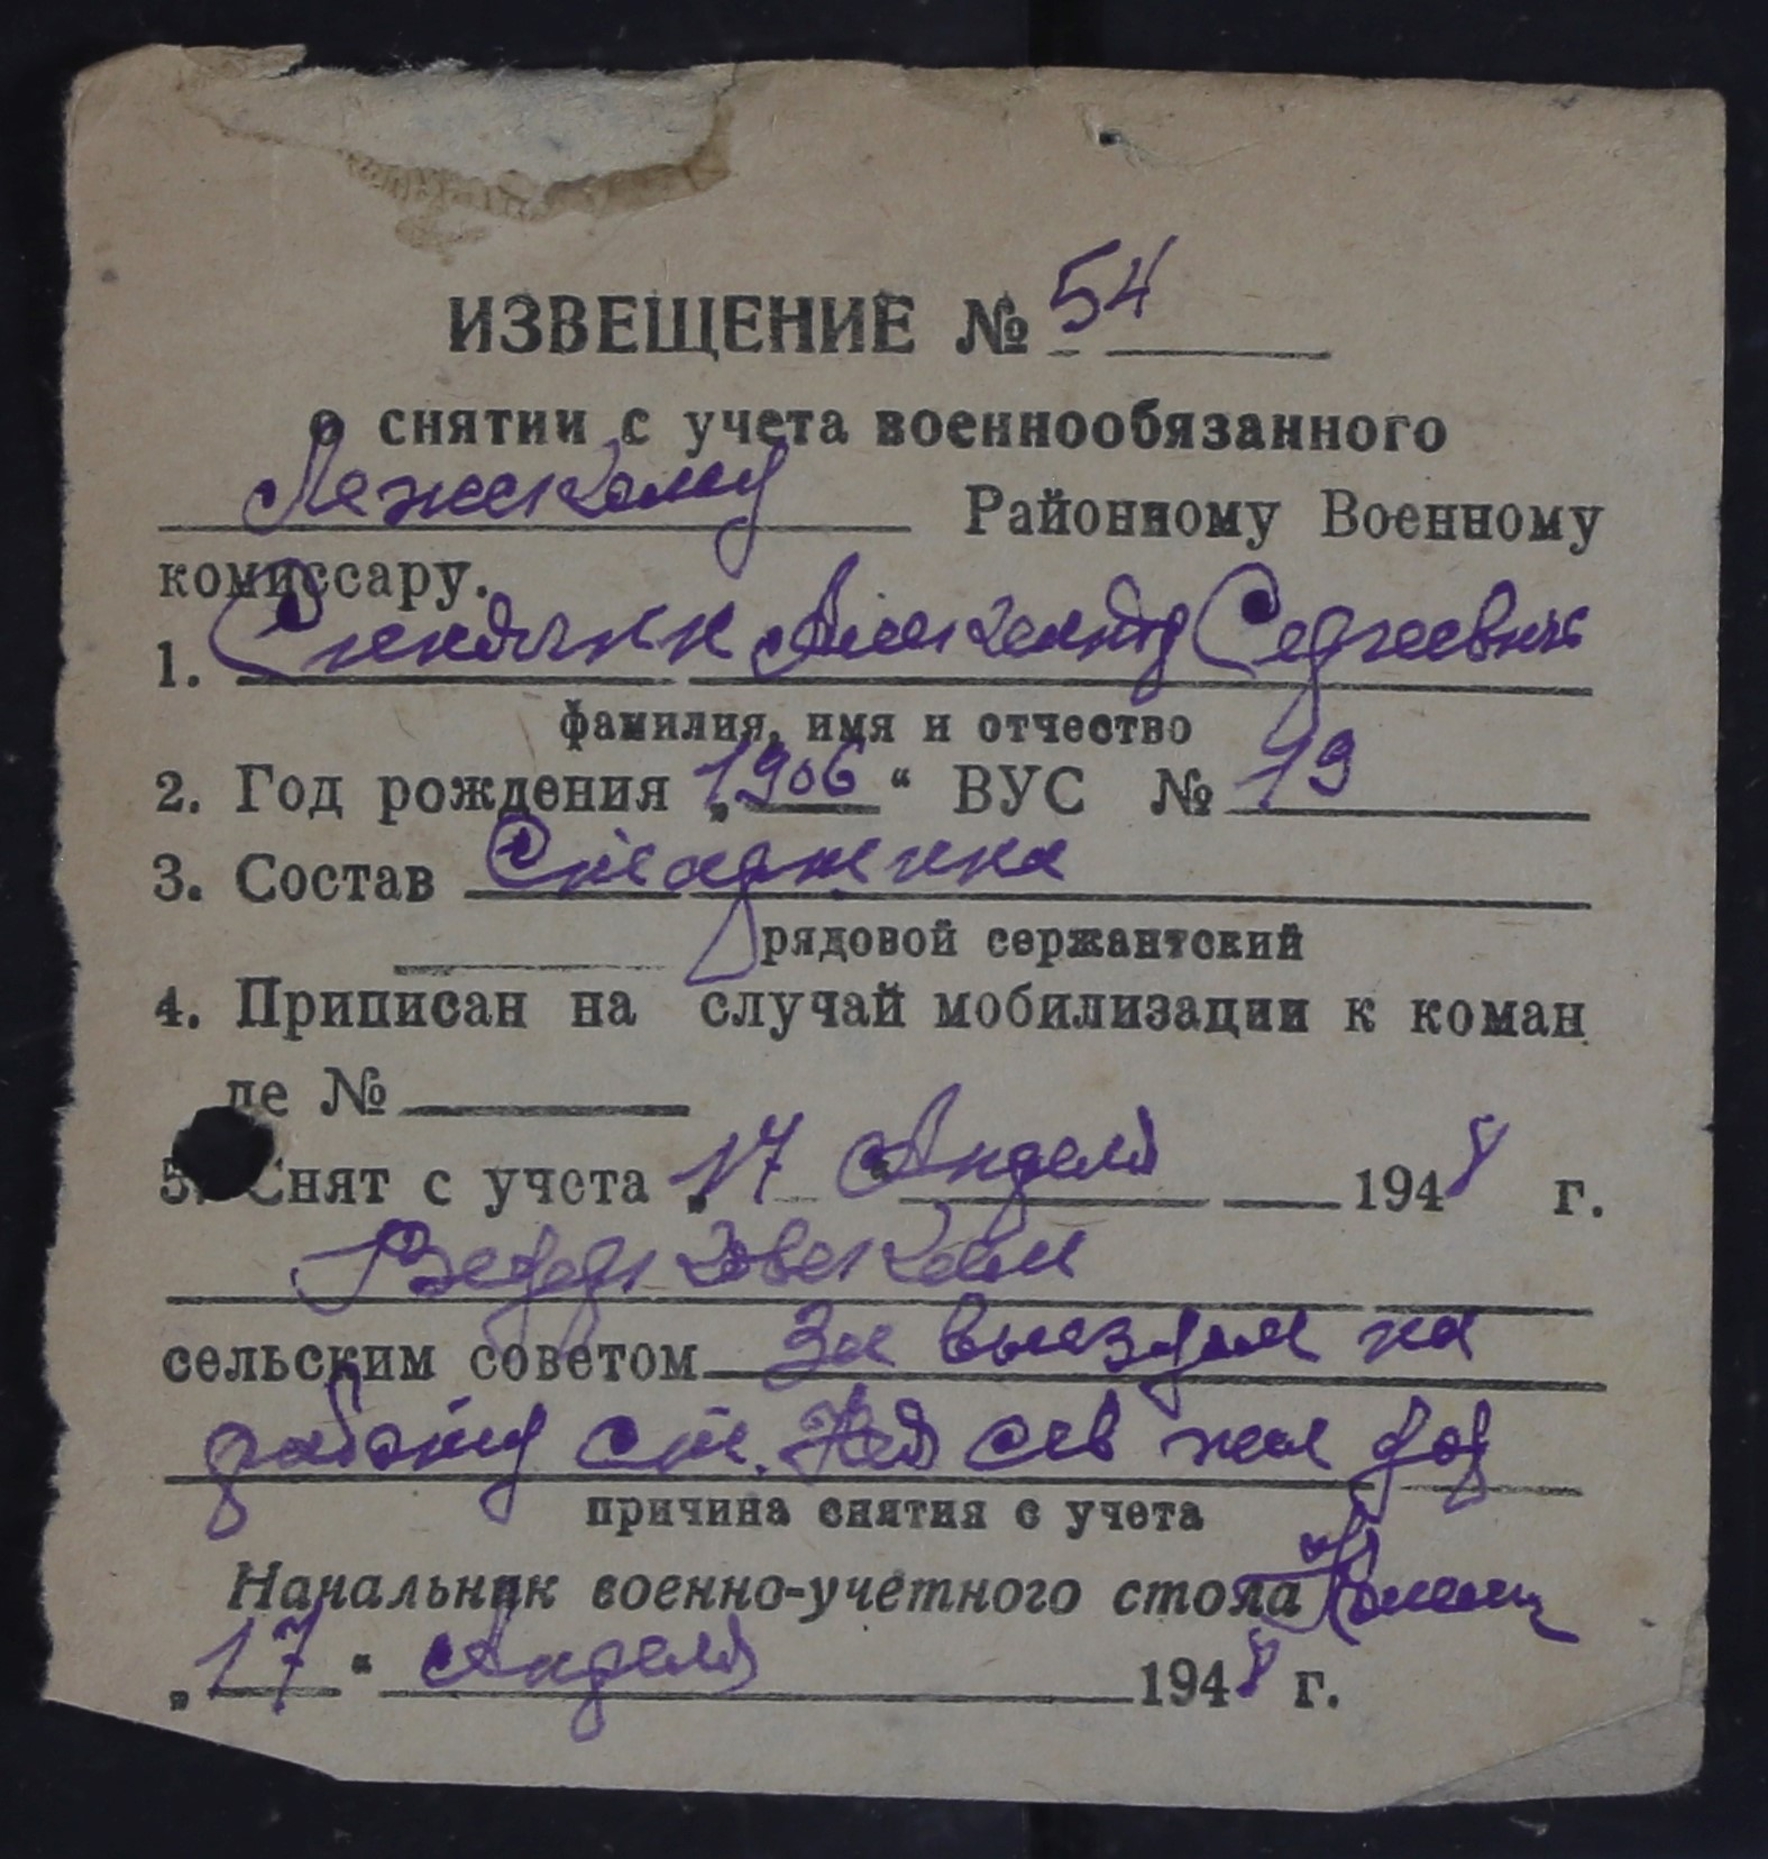 ИЗВЕЩЕНИЕ № 54
о снятии с учета военнообязанного
Лежскому Районному Военному
комиссару.
1. Синячкин Александр Сергеевич
фамилия, имя и отчество
2. Год рождения „1906“ ВУС № 19
3. Состав Старшина
рядовой сержантский
4. Приписан на случай мобилизации к коман
де №
5. Снят с учета „17 Апреля 1948 г.
сельским советом За выездом на
работу ст. сев жел дор
причина снятия с учета
Начальник военно-учетного стола
„17“ Апреля 1948 г.